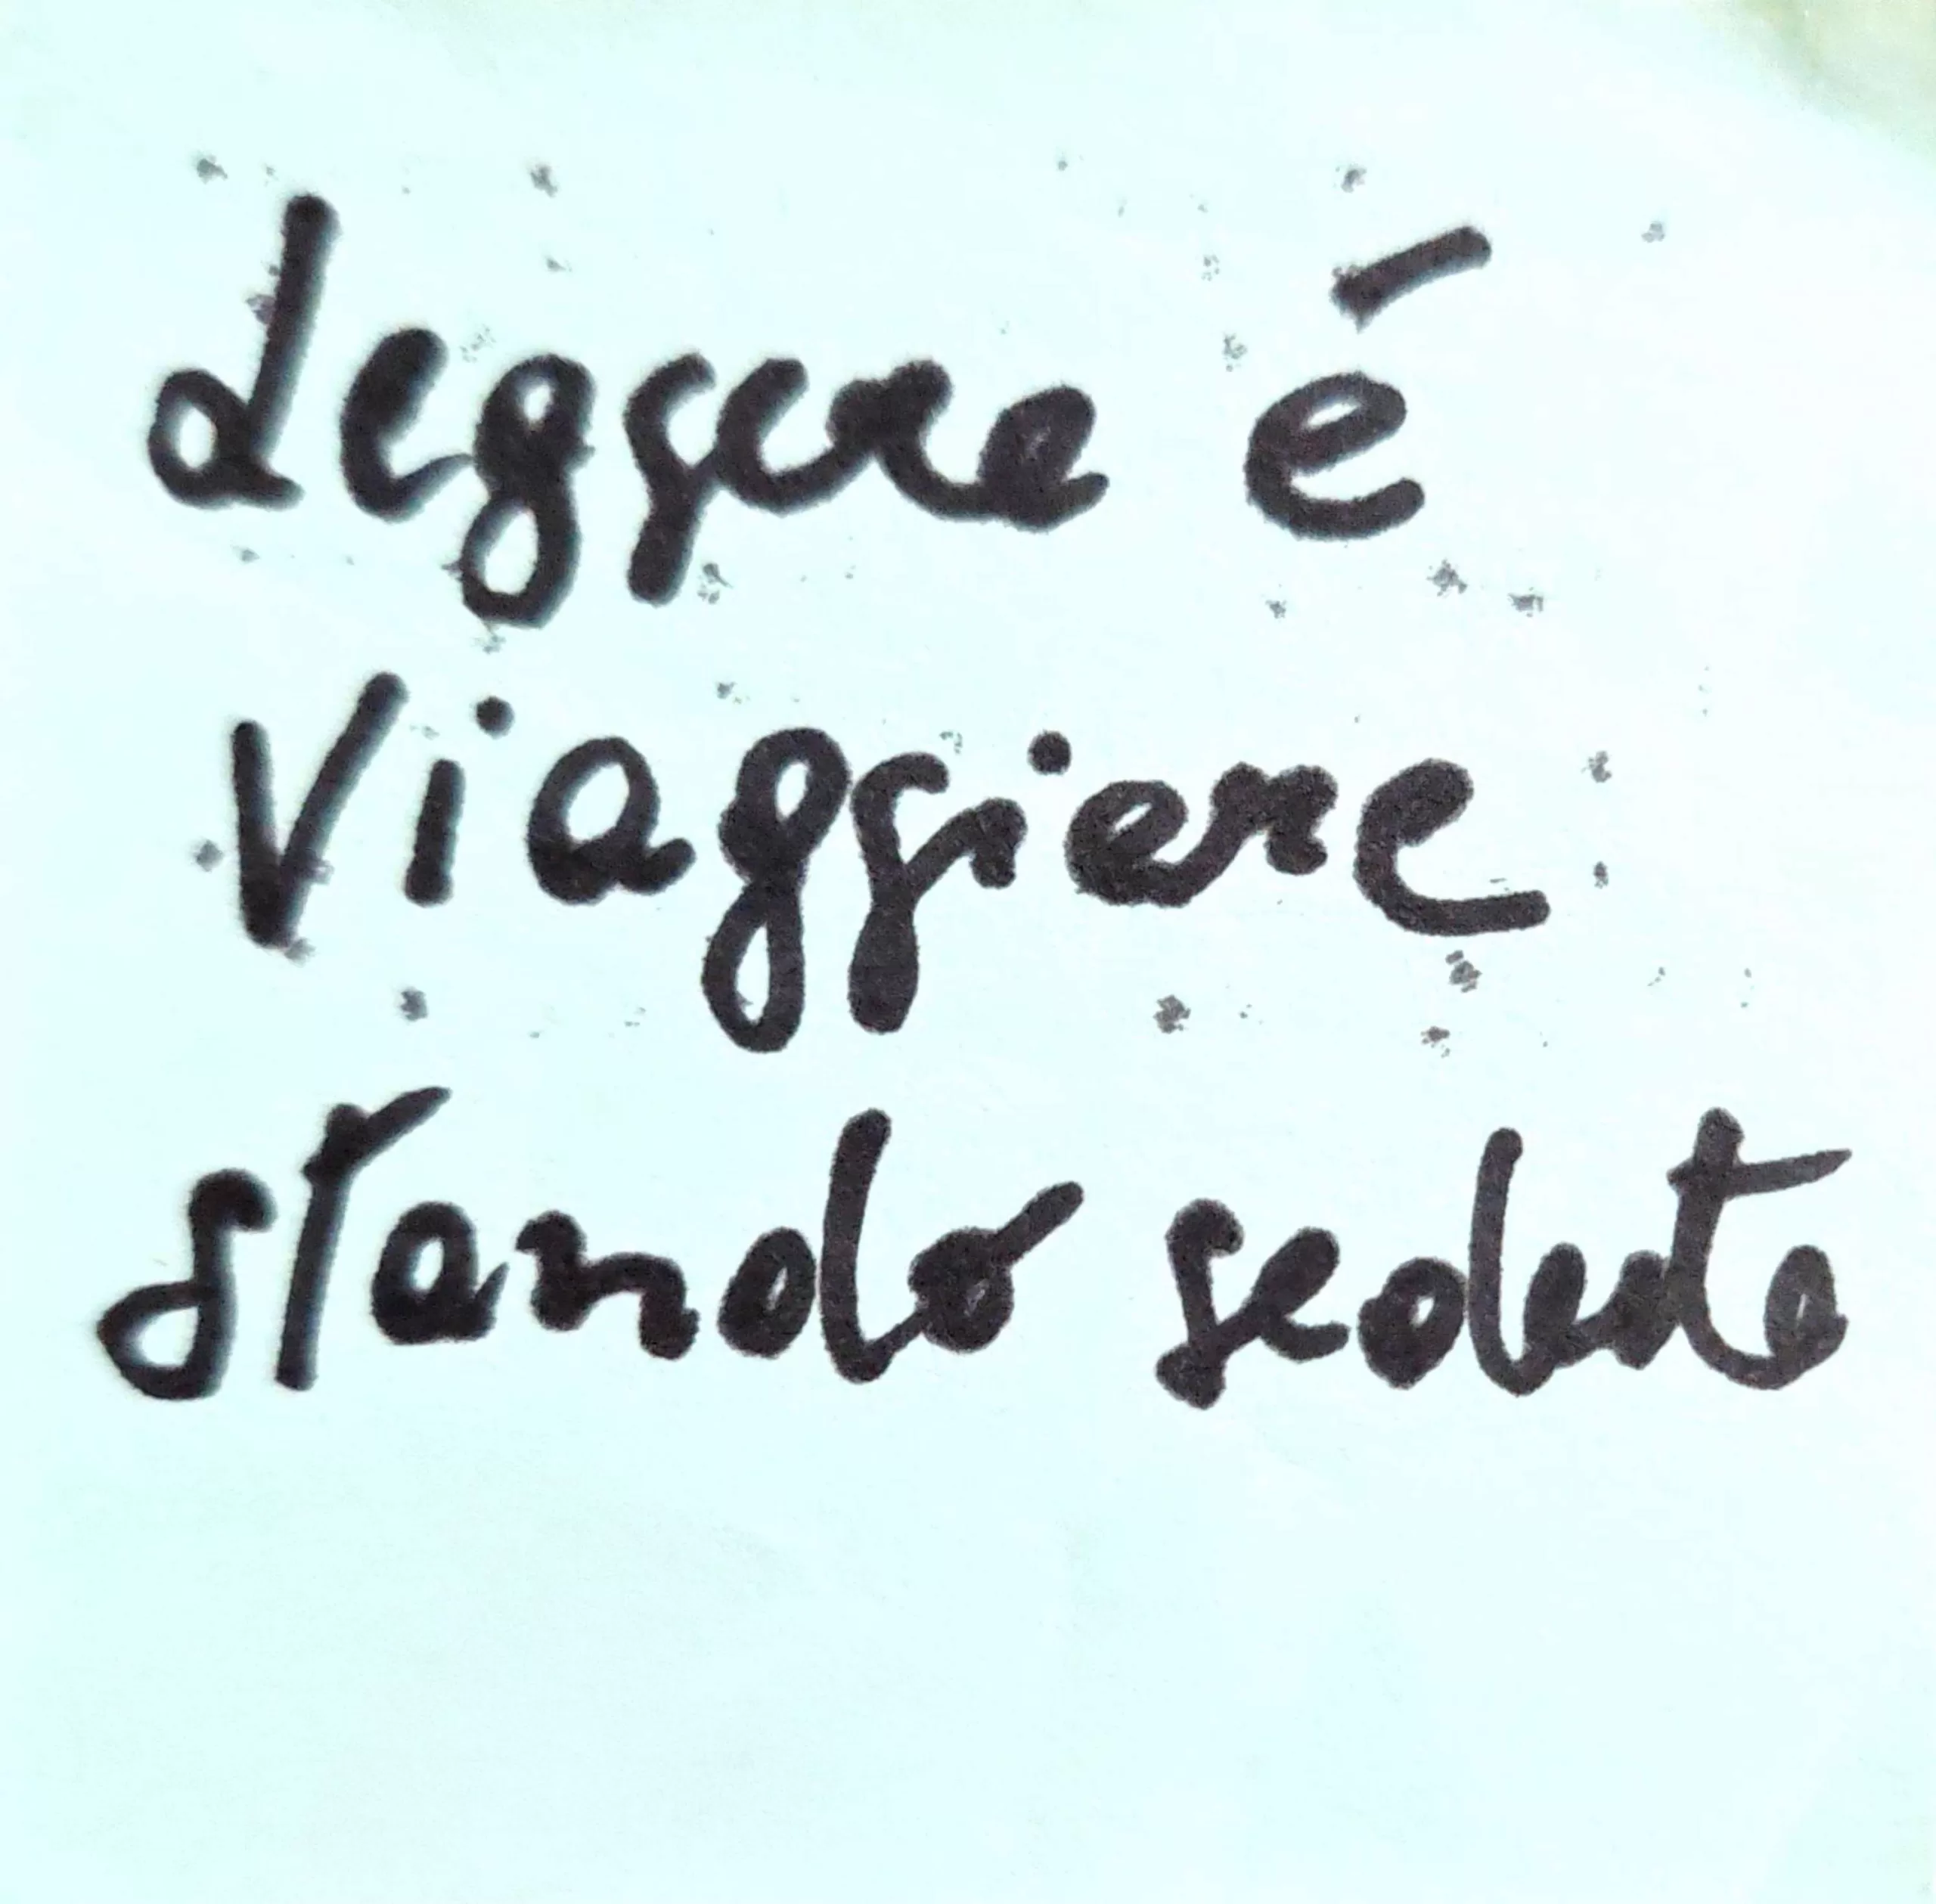 Leggere é
viaggiare
stando seduto